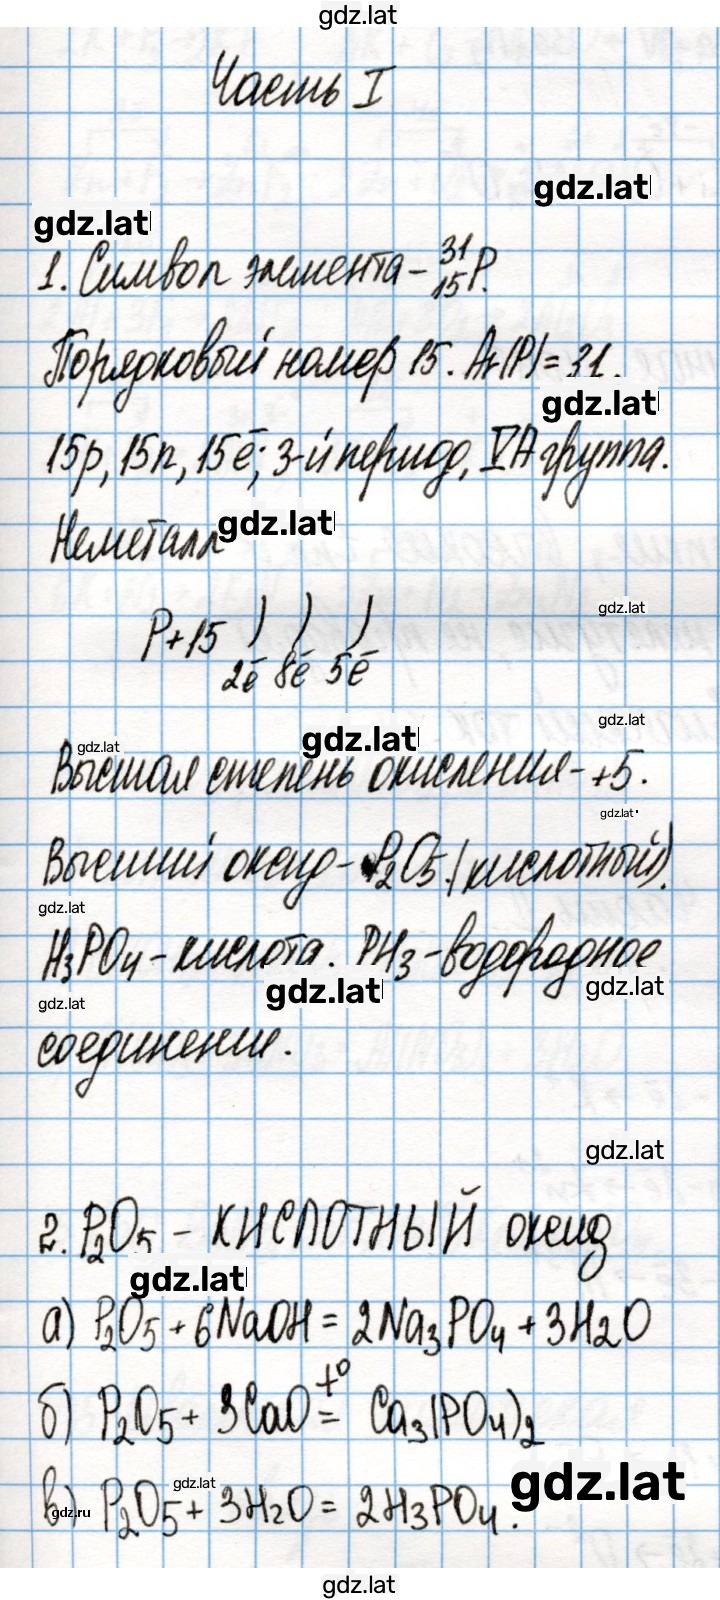 gdz.lat
Часть I
gdz.lat
gdz.lat
1. Символ элемента - ³¹₁₅P.
Порядковый номер 15. Ar(P)=31.
gdz.lat
15p, 15n, 15ē; 3-й период, VA группа.
Неметалл gdz.lat
gdz.lat
P+15 ) ) )
2ē 8ē 5ē
gdz.lat
gdz.lat
gdz.lat
Высшая степень окисления - +5.
gdz.lat
Высший оксид - P₂O₅ (кислотный).
gdz.lat
H₃PO₄ - кислота. PH₃ - водородное
gdz.lat
gdz.lat
gdz.lat
соединение.
gdz.lat
2. P₂O₅ - КИСЛОТНЫЙ оксид
gdz.lat
а) P₂O₅ + 6NaOH = 2Na₃PO₄ + 3H₂O
б) P₂O₅ + 3CaO =^t° Ca₃(PO₄)₂
gdz.lat
gdz.lat
в) P₂O₅ + 3H₂O = 2H₃PO₄.
gdz.ru
gdz.lat